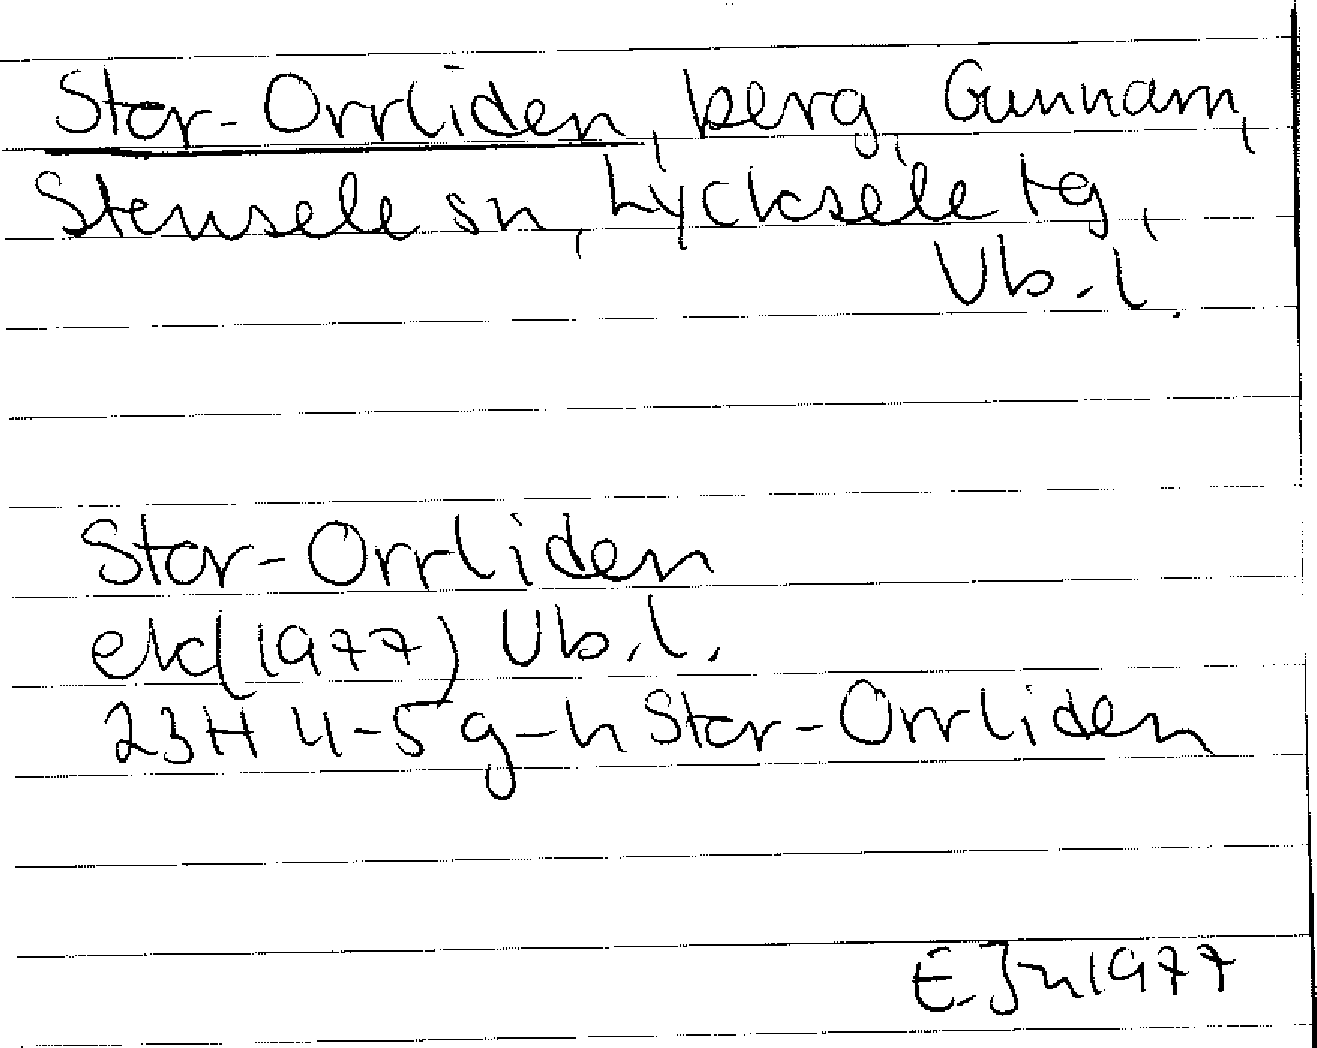 Stor-Orrliden, berg, Gunnarn,
Stensele sn, Lycksele tg,
Vb.l.
Stor-Orrliden
ek(1977) Vb.l.
23H 4-5 g-h Stor-Orrliden
E.Jn 1977